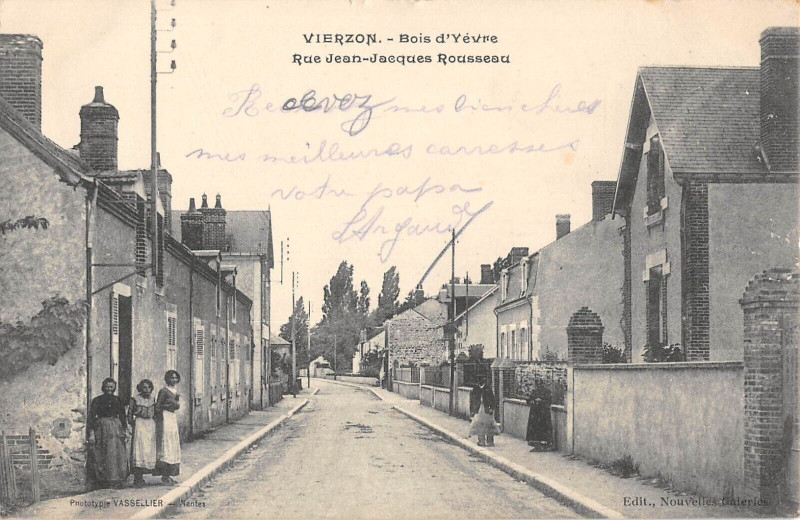 VIERZON. - Bois d'Yévre
Rue Jean-Jacques Rousseau
Recevez mes bien chères
mes meilleures carresses
votre papa
Phototypie VASSELLIER — Nantes
Edit., Nouvelles Galeries